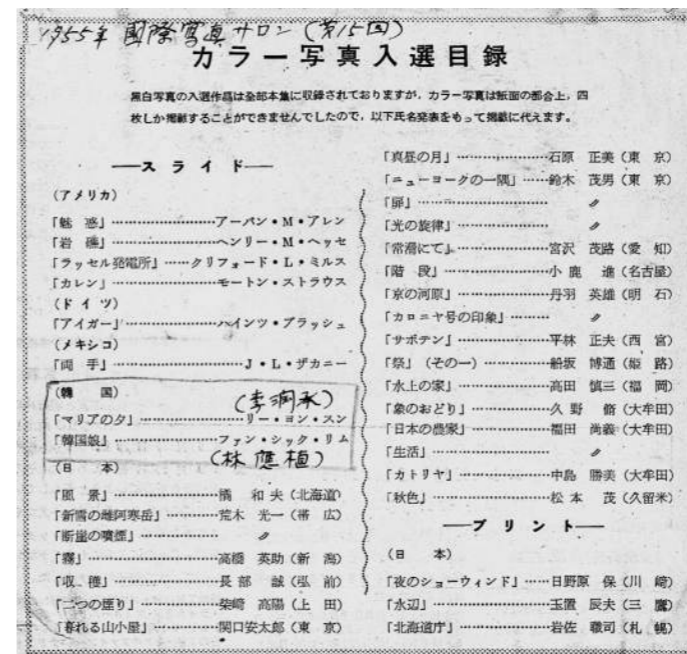 1955年 國際寫真サロン(第15回)
カラー写真入選目録
黒白写真の入選作品は全部本集に収録されておりますが、カラー写真は紙面の都合上、四
枚しか掲載することができませんでしたので、以下氏名発表をもって掲載に代えます。
――スライド――
(アメリカ)
「魅 惑」…………………アーバン・M・アレン
「岩 礁」…………………ヘンリー・M・ヘッセ
「ラッセル発電所」……クリフォード・L・ミルス
「カレン」…………………モートン・ストラウス
(ドイツ)
「アイガー」………………ハインツ・ブラッシュ
(メキシコ)
「両 手」……………………J・L・ザカニー
(韓 国)
(李潤承)
「マリアの夕」………………リー・ヨン・スン
「韓国娘」……………ファン・シック・リム
(林應植)
(日 本)
「風 景」…………………橘 和夫(北海道)
「新雪の雌阿寒岳」………荒木 光一(帯 広)
「断崖の噴煙」…………… 〃
「霧」………………………高橋 英助(新 潟)
「収 穫」…………………長部 誠(弘 前)
「二つの煙り」……………柴崎 高陽(上 田)
「暮れる山小屋」…………関口安太郎(東 京)
「真昼の月」………………石原 正美(東 京)
「ニューヨークの一隅」……鈴木 茂男(東 京)
「扉」……………………… 〃
「光の旋律」……………… 〃
「常滑にて」………………宮沢 茂路(愛 知)
「階 段」…………………小鹿 進(名古屋)
「京の河原」………………丹羽 英雄(明 石)
「カロニヤ号の印象」……… 〃
「サボテン」………………平林 正夫(西 宮)
「祭」(その一)……………船坂 博通(姫 路)
「水上の家」………………高田 慎三(福 岡)
「象のおどり」……………久野 脩(大牟田)
「日本の農家」……………福田 尚義(大牟田)
「生活」…………………… 〃
「カトリヤ」………………中島 勝美(大牟田)
「秋色」……………………松本 茂(久留米)
――プリント――
(日 本)
「夜のショーウィンド」……日野原 保(川 崎)
「水辺」……………………玉置 辰夫(三 鷹)
「北海道庁」………………岩佐 職司(札 幌)